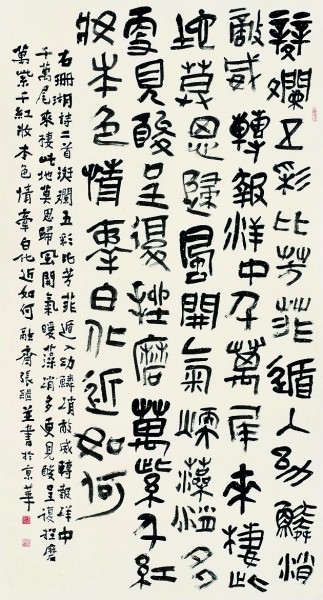 斑斕五彩比芳菲遁入幼鱗消
敵威轉報洋中千萬尾來棲此
地莫思歸風開氣暖藻消多
更見酸呈復挫磨萬紫千紅
妝本色情牽白化近如何
右珊瑚詩二首斑斕五彩比芳菲遁入幼鱗消敵威轉報洋中
千萬尾來棲此地莫思歸風開氣暖藻消多更見酸呈復挫磨
萬紫千紅妝本色情牽白化近如何融齋張繼並書於京華